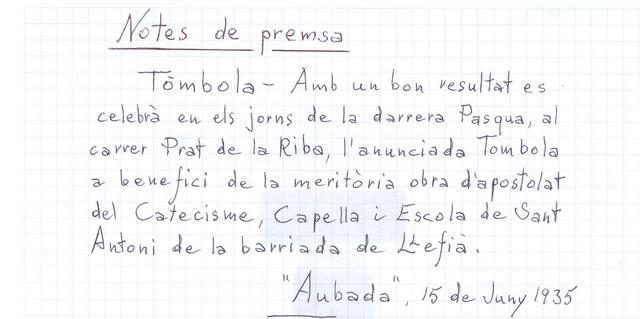 Notes de premsa
Tómbola - Amb un bon resultat es
celebrà en els jorns de la darrera Pasqua, al
carrer Prat de la Riba, l'anunciada Tombola
a benefici de la meritòria obra d'apostolat
del Catecisme, Capella i Escola de Sant
Antoni de la barriada de Llefià.
"Aubada", 15 de Juny 1935